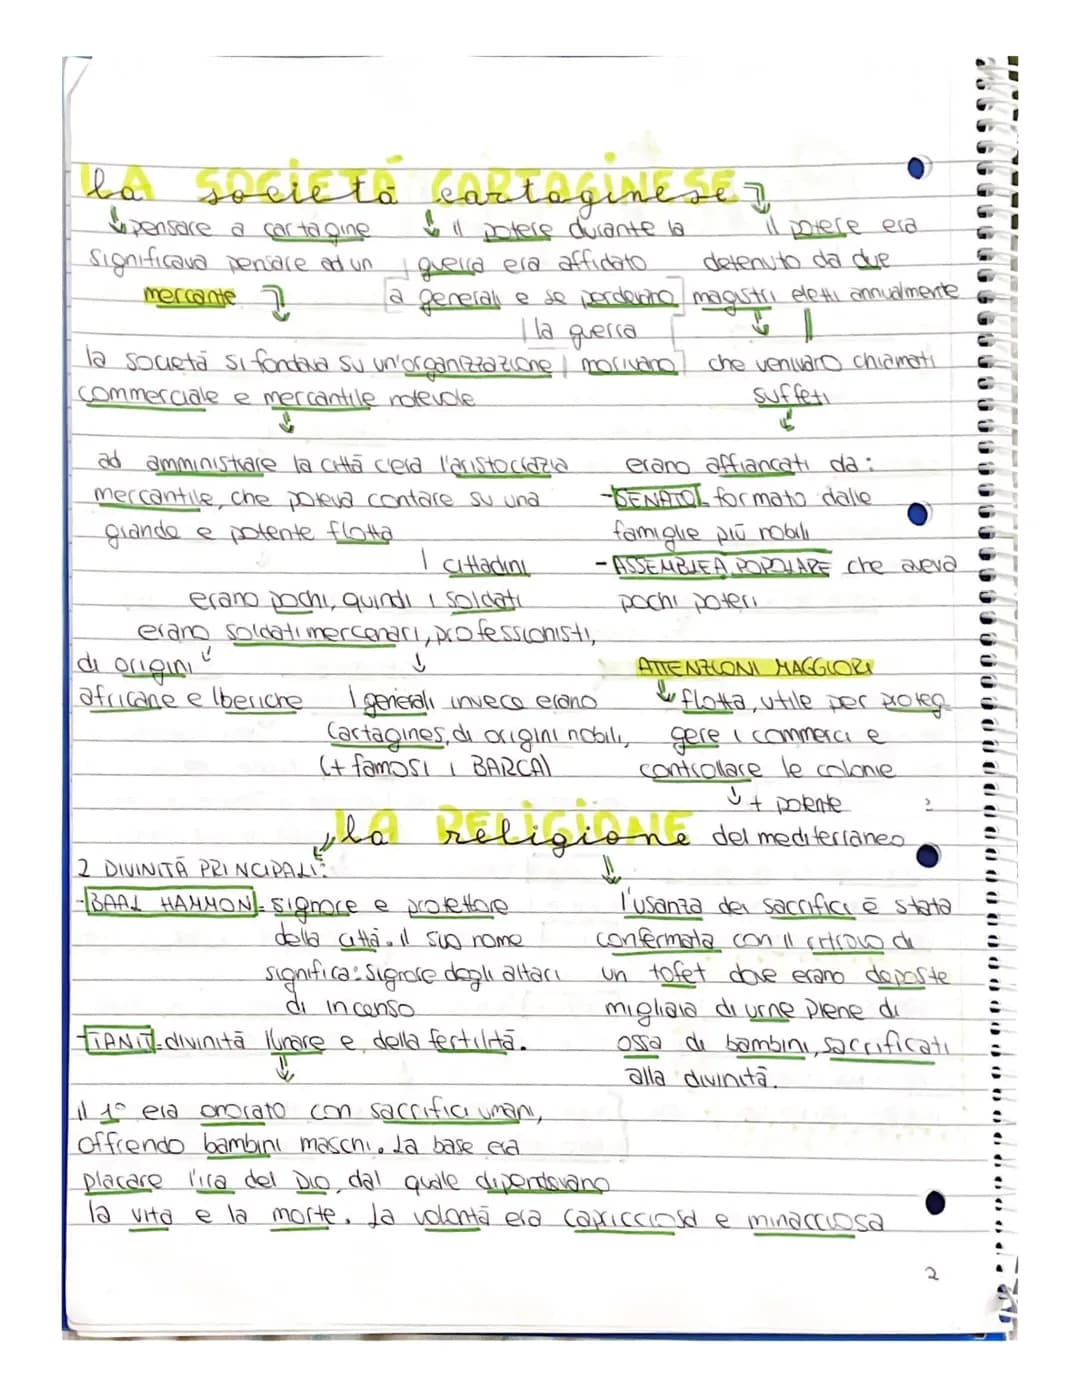 la società cartaginese
pensare a cartagine
significava pensare ad un
mercante
la società si fondava su un'organizzazione
commerciale e mercantile notevole
ad amministrare la città c'era l'aristocrazia
mercantile, che poteva contare su una
grande e potente flotta
il potere durante la
guerra era affidato
a generali e se perdevano
la guerra
morivano
il potere era
detenuto da due
magistri eletti annualmente
che venivano chiamati
suffeti
erano affiancati da:
-SENATO- formato dalle
famiglie più nobili
- ASSEMBLEA POPOLARE che aveva
pochi poteri
I cittadini
erano pochi, quindi i soldati
erano soldati mercenari, professionisti,
di origini
africane e Iberiche
I generali invece erano
Cartagines, di origini nobili,
(+ famosi i BARCA)
ATTENZIONI MAGGIORI
flotta, utile per proteg
gere i commerci e
controllare le colonie
+ potente
del mediterraneo
la religione
2 DIVINITÀ PRINCIPALI:
-BAAL HAMMON- signore e protettore
della città. il suo nome
significa: signore degli altari
di incenso
-TANIT- divinità lunare e della fertilità.
il 1° era onorato con sacrifici umani,
offrendo bambini maschi. La base era
placare l'ira del Dio, dal quale dipendevano
la vita e la morte. La volontà era capricciosa e minacciosa
l'usanza dei sacrifici è stata
confermata con il ritrovo di
un tofet dove erano deposte
migliaia di urne piene di
ossa di bambini, sacrificati
alla divinità.
2